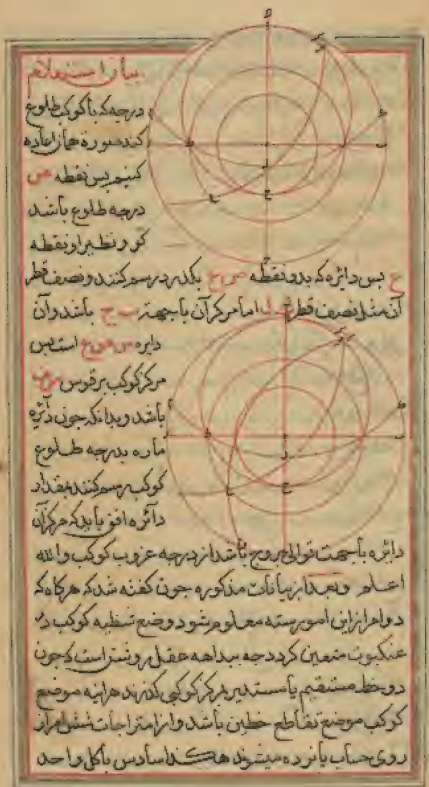 بیان استعلام
درجه که با کوکب طلوع
کند صورة همان اعاده
کنیم پس نقطه ص
درجه طلوع باشد
کو و نظیر او نقطه
ع پس دایره که بدو نقطه ص ع بگذرد رسم کنند و نصف قطر
آن مثل نصف قطر اما مرکز آن با جهت باشد و آن
دایره است پس
مرکز کوکب بر قوس
باشد و بدانکه چون دایره
ماره بدرجه طلوع
کوکب رسم کنند بمقدار
دائره افق باید که مرکز آن
دایره با جهت توالی بروج باشد از درجه غروب کوکب والله
اعلم و بعد از بیانات مذکوره چون کفته شد که هرکاه که
دو امر از این امور سته معلوم شود وضع شظیه کوکب در
عنکبوت متعین کردد چه ببداهه عقل روشن است که چون
دو خط مستقیم یا مستدیر بمرکز کوکبی کذرند هرآینه موضع
کوکب موضع تقاطع خطین باشد و از امتزاجات شش امر از
روی حساب پانزده میشوند هکذا سادس با کل واحد